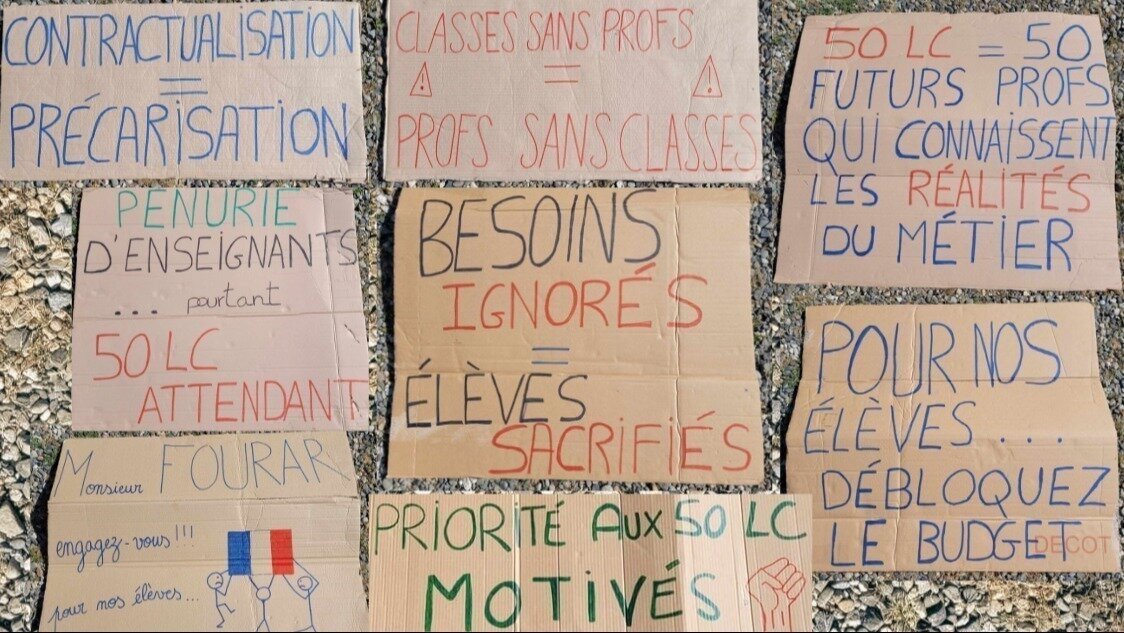 CONTRACTUALISATION
=
PRÉCARISATION
CLASSES SANS PROFS
=
PROFS SANS CLASSES
50 LC = 50
FUTURS PROFS
QUI CONNAISSENT
LES RÉALITÉS
DU MÉTIER
PENURIE
D'ENSEIGNANTS
... pourtant
50 LC
ATTENDANT
BESOINS
IGNORÉS
=
ÉLÈVES
SACRIFIÉS
POUR NOS
ÉLÈVES ...
DÉBLOQUEZ
LE BUDGET
DECOT
Monsieur FOURAR
engagez-vous!!!
pour nos élèves...
PRIORITÉ AUX 50 LC
MOTIVÉS